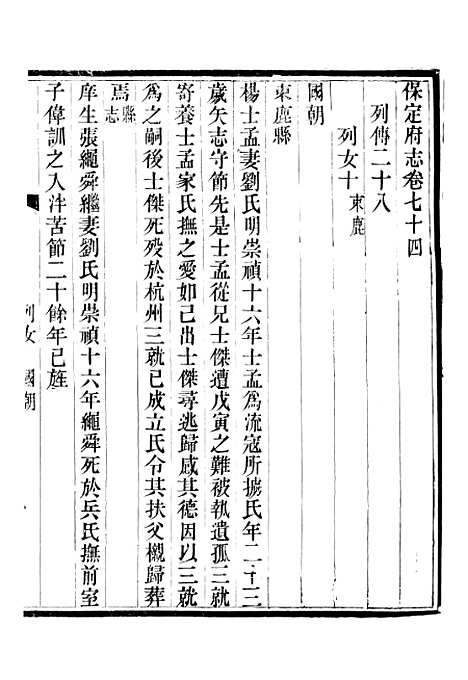 保定府志卷七十四
列傳二十八
列女十 束鹿
國朝
束鹿縣
楊士孟妻劉氏明崇禎十六年士孟為流寇所擄氏年二十三
歲矢志守節先是士孟從兄士傑遭戊寅之難被執遺孤三就
寄養士孟家氏撫之愛如己出士傑尋逃歸感其德因以三就
為之嗣後士傑死歿於杭州三就已成立氏令其扶父櫬歸葬
馬縣志
庠生張繩舜繼妻劉氏明崇禎十六年繩舜死於兵氏撫前室
子偉訓之入泮苦節二十餘年已旌
列女 國朝